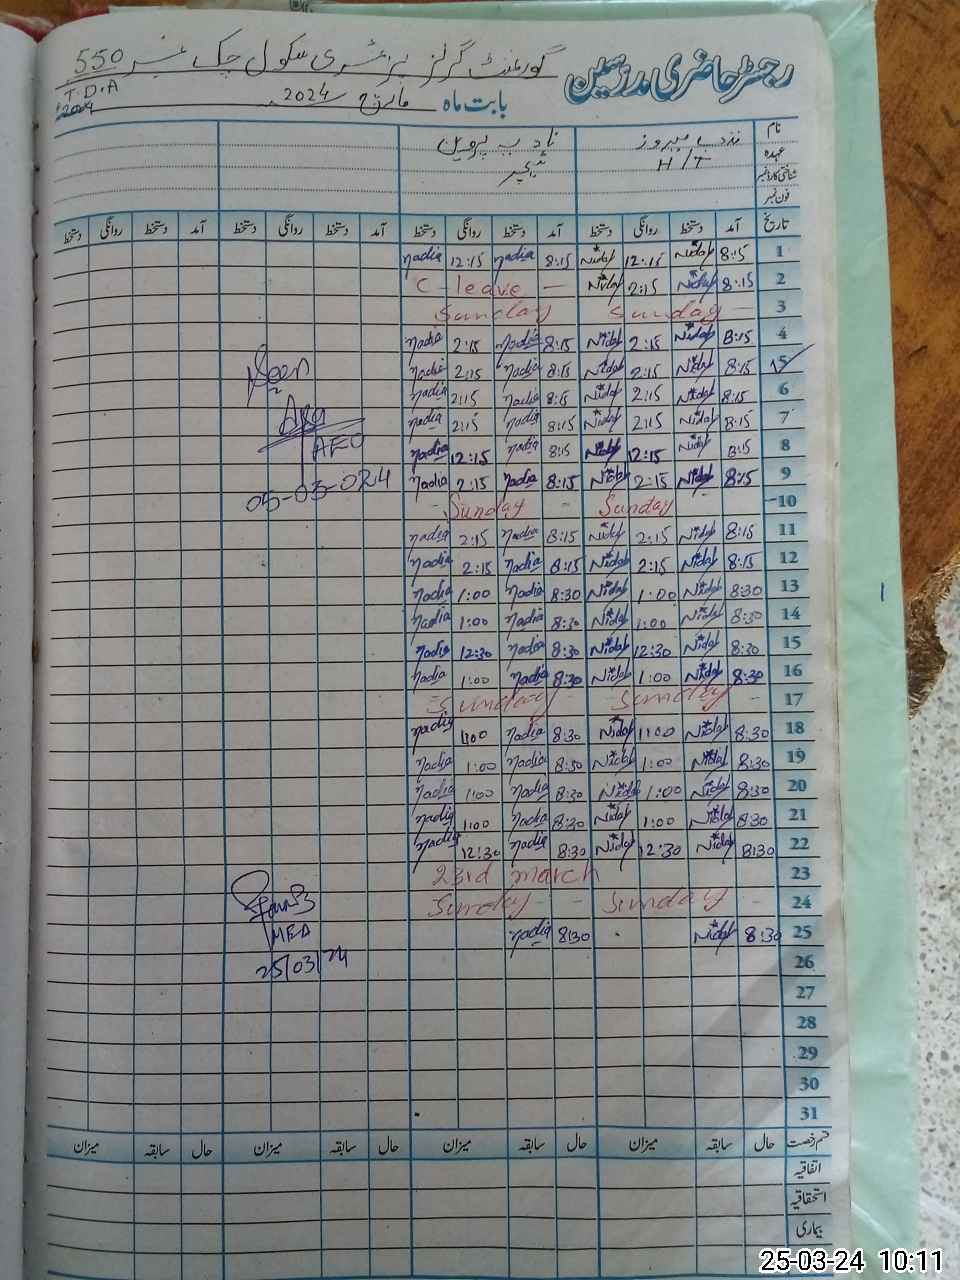 رجسٹر حاضری مدرسین گورنمنٹ گرلز پرائمری سکول چک نمبر 550
T.D.A
بابت ماہ مارچ 2024
نام نادیہ پروین
عہدہ H/T ٹیچر
شناختی کارڈ نمبر
فون نمبر
تاریخ آمد دستخط روانگی دستخط آمد دستخط روانگی دستخط آمد دستخط روانگی دستخط آمد دستخط روانگی دستخط
1 8:15 Nidaf 12:15 Nidaf 8:15 nadia 12:15 nadia
2 8:15 Nidaf 2:15 Nidaf C-leave -
3 Sunday Sunday
4 8:15 Nidaf 2:15 Nidaf 8:15 nadia 2:15 nadia
5 8:15 Nidaf 2:15 Nidaf 8:15 nadia 2:15 nadia
6 8:15 Nidaf 2:15 Nidaf 8:15 nadia 2:15 nadia
7 8:15 Nidaf 2:15 Nidaf 8:15 nadia 2:15 nadia
8 8:15 Nidaf 12:15 Nidaf 8:15 nadia 12:15 nadia
9 8:15 Nidaf 2:15 Nidaf 8:15 nadia 2:15 nadia
10 Sunday Sunday
11 8:15 Nidaf 2:15 Nidaf 8:15 nadia 2:15 nadia
12 8:15 Nidaf 2:15 Nidaf 8:15 nadia 2:15 nadia
13 8:30 Nidaf 1:00 Nidaf 8:30 nadia 1:00 nadia
14 8:30 Nidaf 1:00 Nidaf 8:30 nadia 1:00 nadia
15 8:30 Nidaf 12:30 Nidaf 8:30 nadia 12:30 nadia
16 8:30 Nidaf 1:00 Nidaf 8:30 nadia 1:00 nadia
17 Sunday Sunday
18 8:30 Nidaf 1:00 Nidaf 8:30 nadia 1:00 nadia
19 8:30 Nidaf 1:00 Nidaf 8:30 nadia 1:00 nadia
20 8:30 Nidaf 1:00 Nidaf 8:30 nadia 1:00 nadia
21 8:30 Nidaf 1:00 Nidaf 8:30 nadia 1:00 nadia
22 8:30 Nidaf 12:30 Nidaf 8:30 nadia 12:30 nadia
23 23rd march
24 Sunday Sunday
25 8:30 Nidaf 8:30 nadia
26
27
28
29
30
31
Seen
AEO
05-03-024
MEA
25/03/24
قسم رخصت حال سابقہ میزان حال سابقہ میزان حال سابقہ میزان حال سابقہ میزان
اتفاقیہ
استحقاقیہ
بیماری
25-03-24 10:11